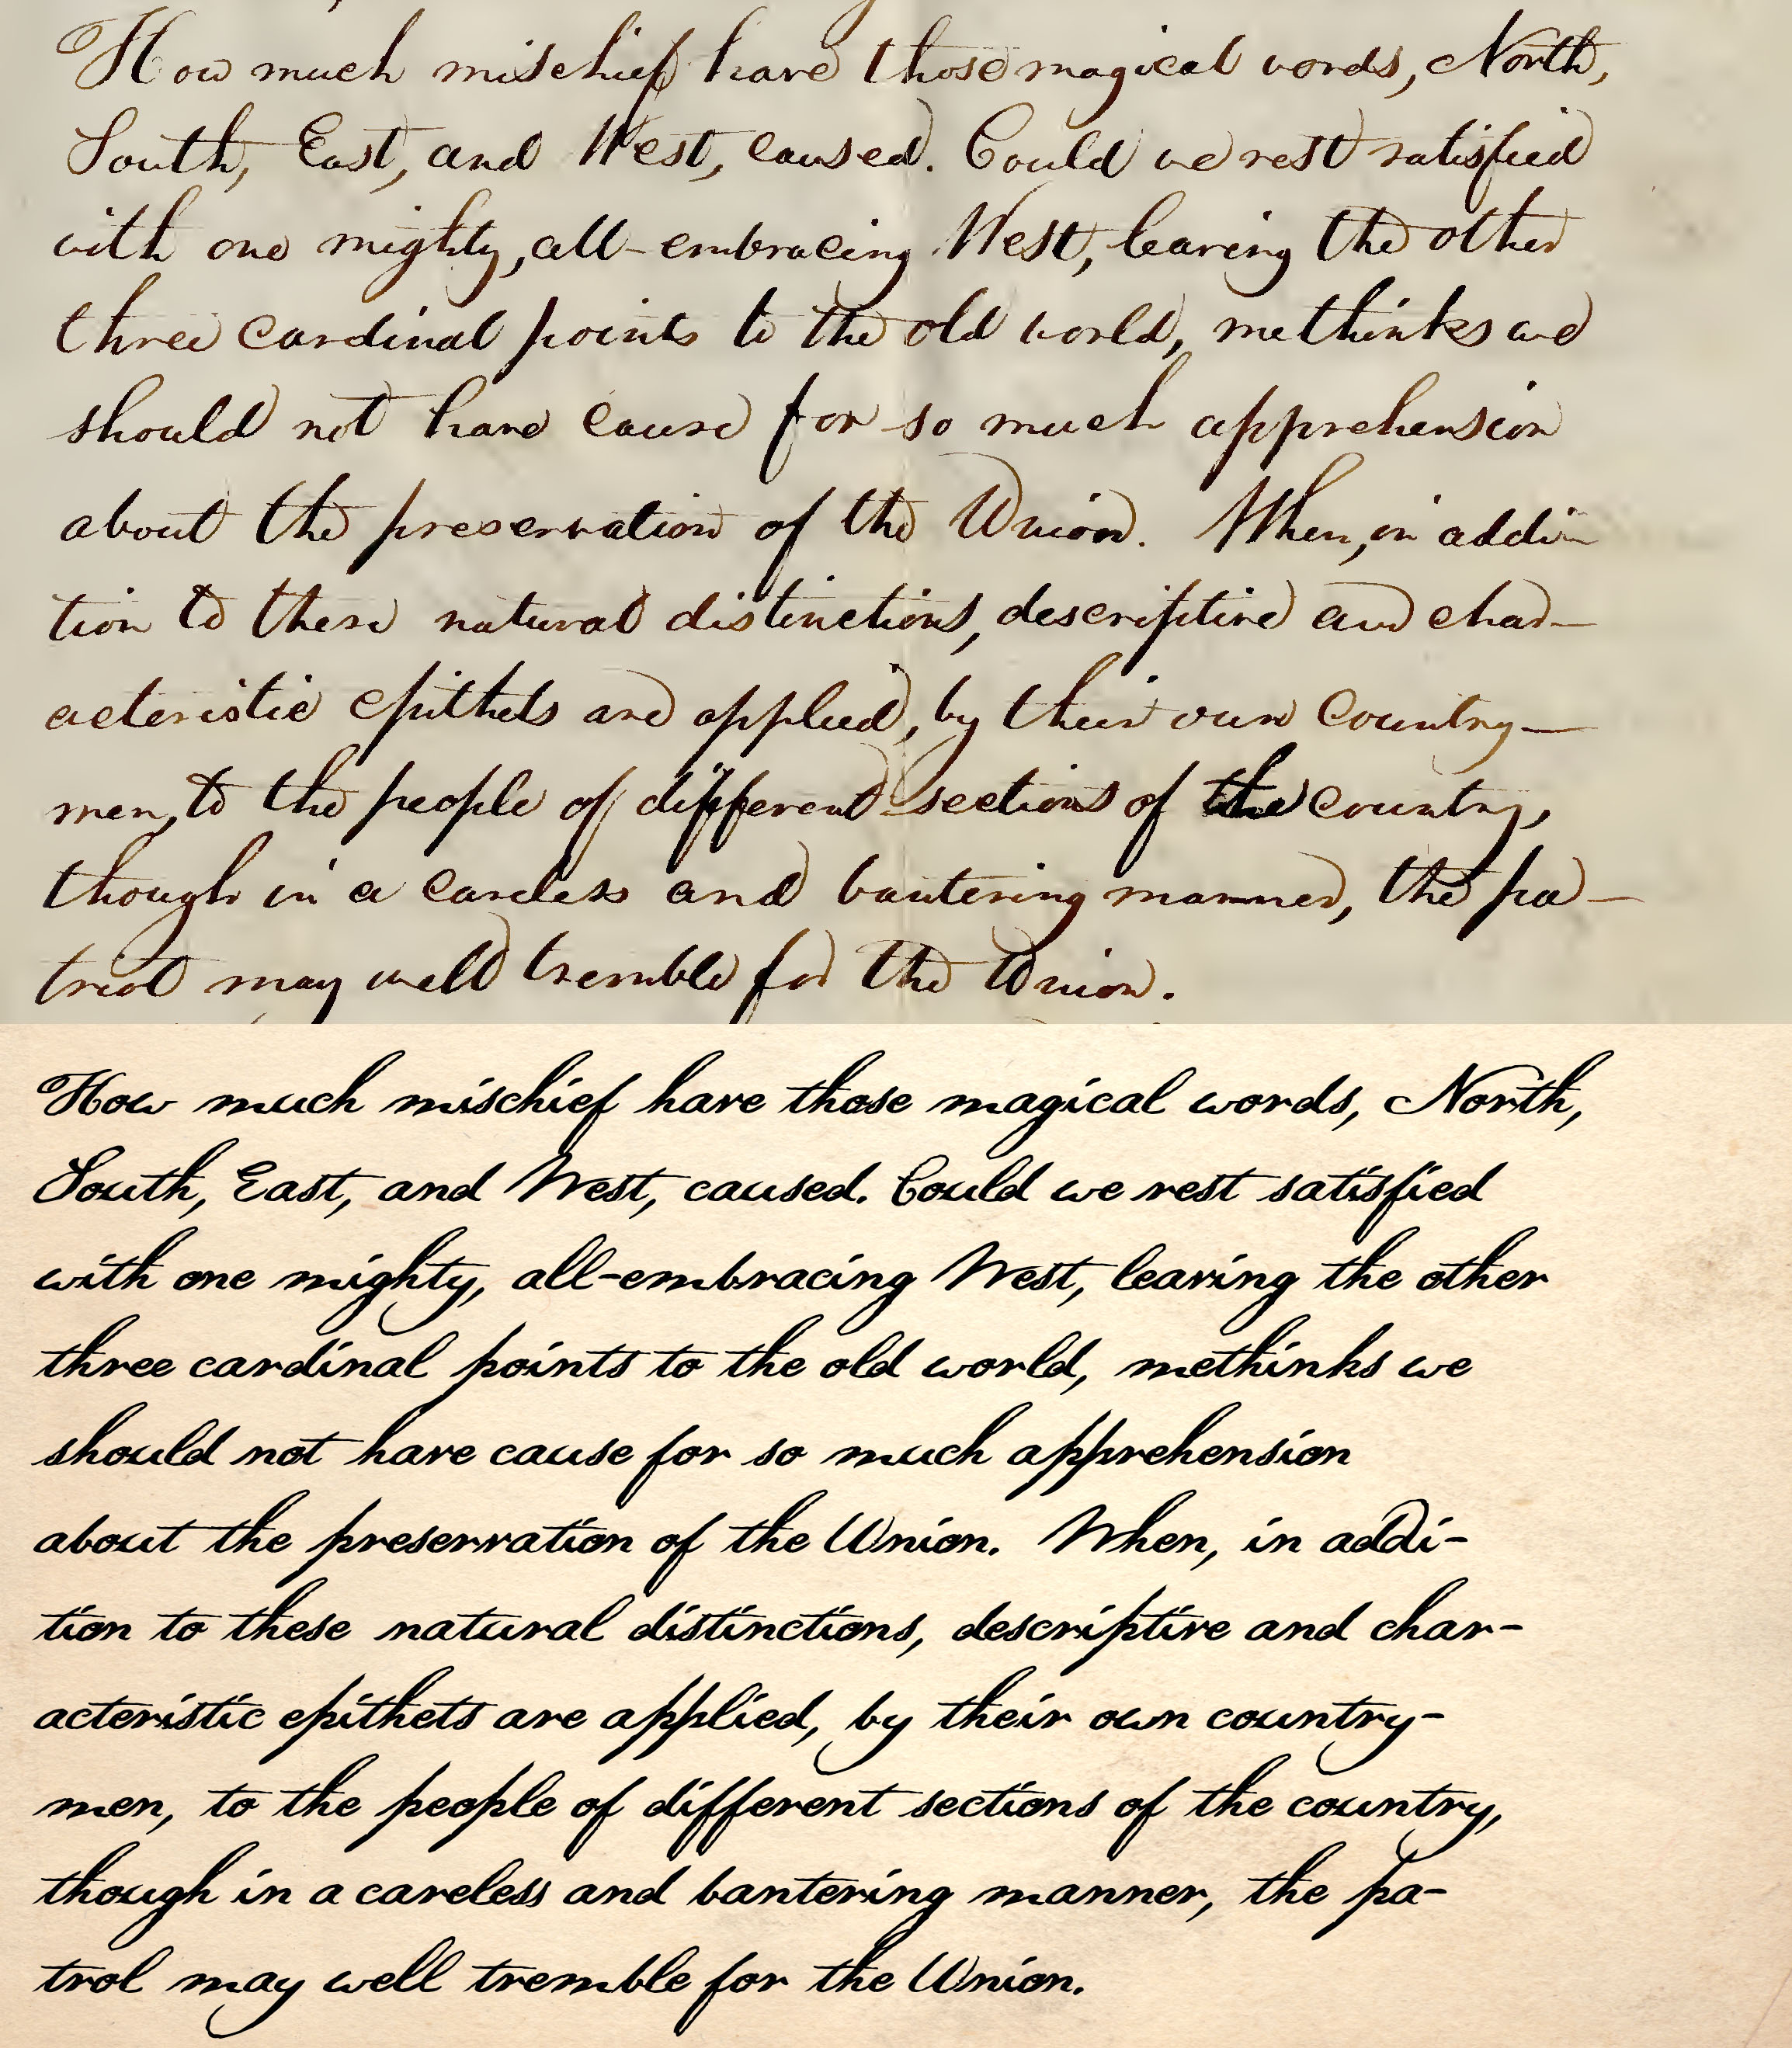 How much mischief have those magical words, North,
South, East, and West, caused. Could we rest satisfied
with one mighty, all-embracing West, leaving the other
three cardinal points to the old world, methinks we
should not have cause for so much apprehension
about the preservation of the Union. When, in addi-
tion to these natural distinctions, descriptive and char-
acteristic epithets are applied, by their own country-
men, to the people of different sections of the country,
though in a careless and bantering manner, the pa-
triot may well tremble for the Union.
How much mischief have those magical words, North,
South, East, and West, caused. Could we rest satisfied
with one mighty, all-embracing West, leaving the other
three cardinal points to the old world, methinks we
should not have cause for so much apprehension
about the preservation of the Union. When, in addi-
tion to these natural distinctions, descriptive and char-
acteristic epithets are applied, by their own country-
men, to the people of different sections of the country,
though in a careless and bantering manner, the pa-
trol may well tremble for the Union.